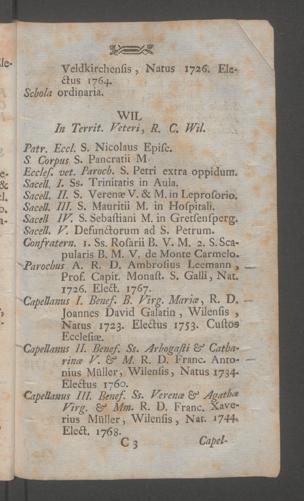 Veldkirchensis, Natus 1726. Ele-
ctus 1764.
Schola ordinaria.
WIL
In Territ. Veteri, R. C. Wil.
Patr. Eccl. S. Nicolaus Episc.
S. Corpus S. Pancratii M.
Eccles. vet. Paroch. S. Petri extra oppidum.
Sacell. I. Ss. Trinitatis in Aula.
Sacell. II. S. Verenæ V. & M. in Leprosorio.
Sacell. III. S. Mauritii M. in Hospitali.
Sacell. IV. S. Sebastiani M. in Gretsensperg.
Sacell. V. Defunctorum ad S. Petrum.
Confratern. 1. Ss. Rosarii B. V. M. 2. S. Sca-
pularis B. M. V. de Monte Carmelo.
Parochus A. R. D. Ambrosius Leemann,
Prof. Capit. Monast. S. Galli, Nat.
1726. Elect. 1767.
Capellanus I. Benef. B. Virg. Mariæ, R. D.
Joannes David Galatin, Wilensis,
Natus 1723. Electus 1753. Custos
Ecclesiæ.
Capellanus II. Benef. Ss. Arbogasti & Catha-
rinæ V. & M. R. D. Franc. Anto-
nius Müller, Wilensis, Natus 1734.
Electus 1760.
Capellanus III. Benef. Ss. Verenæ & Agathæ
Virg. & Mm. R. D. Franc. Xave-
rius Müller, Wilensis, Nat. 1744.
Elect. 1768.
C 3 Capel-